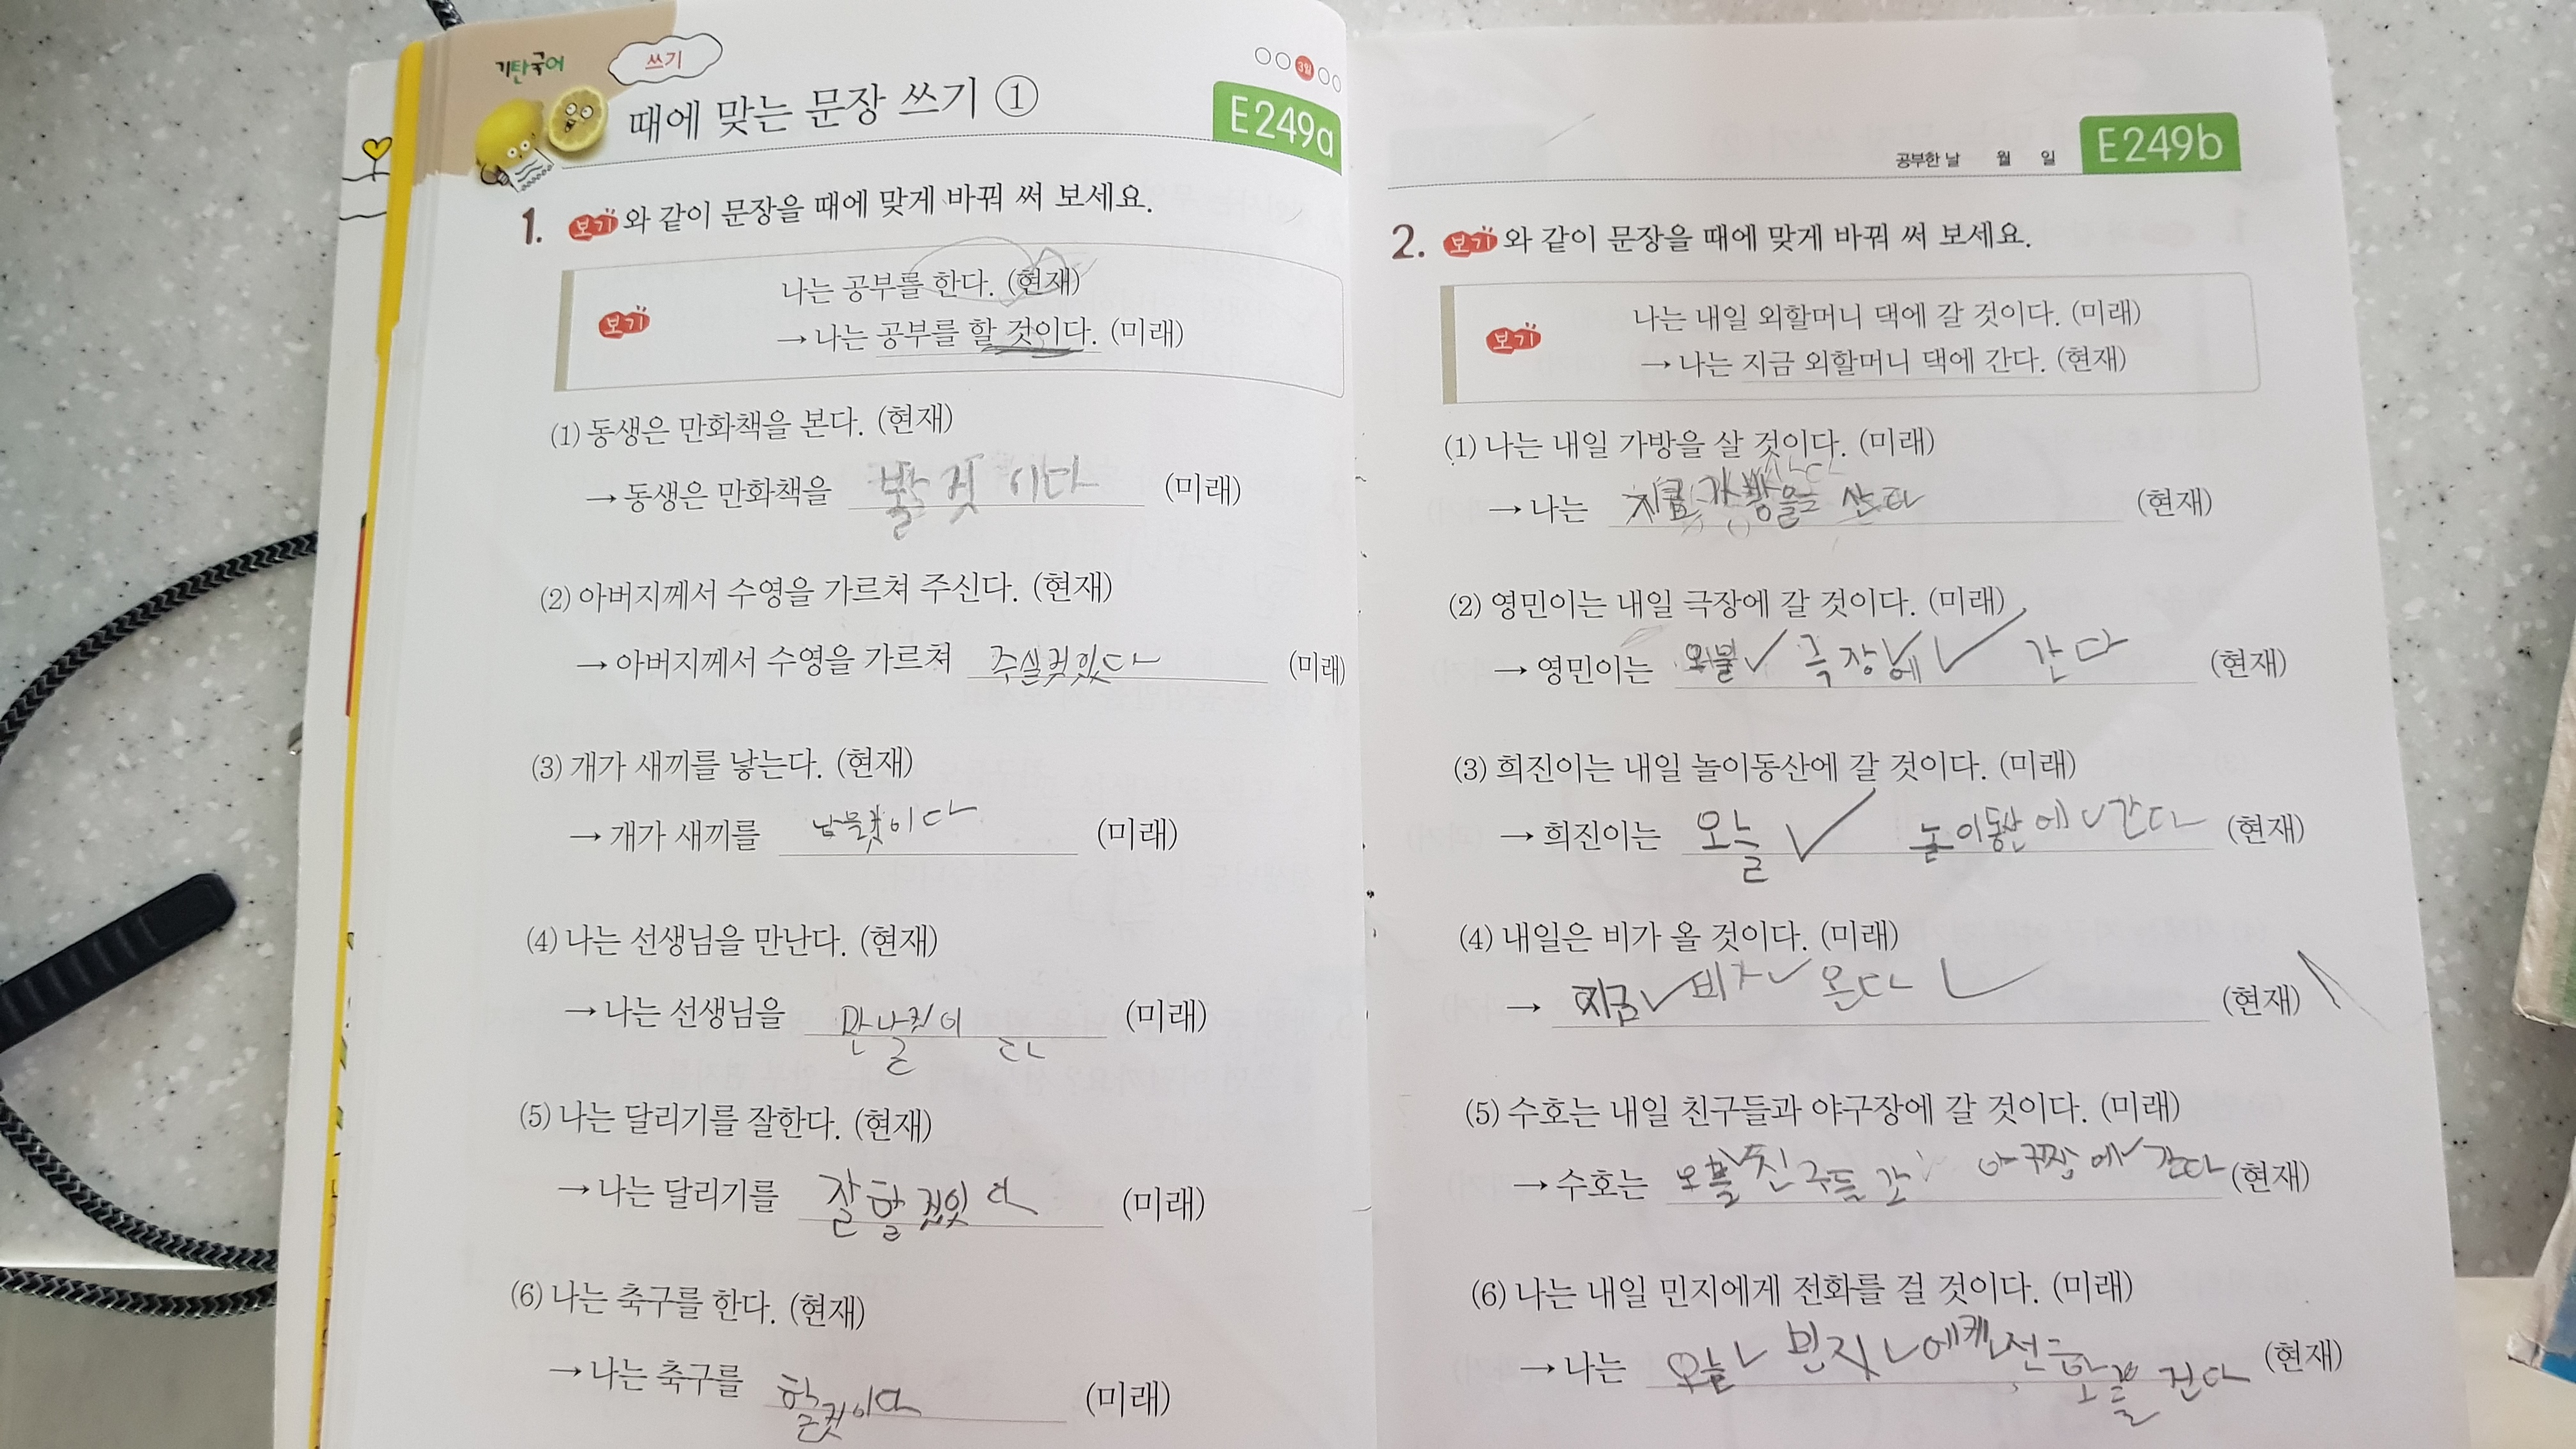 기탄국어
쓰기
3일
때에 맞는 문장 쓰기 ①
E249a
1. 보기와 같이 문장을 때에 맞게 바꿔 써 보세요.
보기
나는 공부를 한다. (현재)
→ 나는 공부를 할 것이다. (미래)
(1) 동생은 만화책을 본다. (현재)
→ 동생은 만화책을 볼 것 이다 (미래)
(2) 아버지께서 수영을 가르쳐 주신다. (현재)
→ 아버지께서 수영을 가르쳐 주실것있다 (미래)
(3) 개가 새끼를 낳는다. (현재)
→ 개가 새끼를 (미래)
(4) 나는 선생님을 만난다. (현재)
→ 나는 선생님을 만날것이다 (미래)
(5) 나는 달리기를 잘한다. (현재)
→ 나는 달리기를 잘할것있다 (미래)
(6) 나는 축구를 한다. (현재)
→ 나는 축구를 할것이다 (미래)
공부한 날 월 일
E249b
2. 보기와 같이 문장을 때에 맞게 바꿔 써 보세요.
보기
나는 내일 외할머니 댁에 갈 것이다. (미래)
→ 나는 지금 외할머니 댁에 간다. (현재)
(1) 나는 내일 가방을 살 것이다. (미래)
→ 나는 지금 가방을 산다 (현재)
(2) 영민이는 내일 극장에 갈 것이다. (미래)
→ 영민이는 오늘 극장에 간다 (현재)
(3) 희진이는 내일 놀이동산에 갈 것이다. (미래)
→ 희진이는 오늘 놀이동산에 간다 (현재)
(4) 내일은 비가 올 것이다. (미래)
→ 지금 비가 온다 (현재)
(5) 수호는 내일 친구들과 야구장에 갈 것이다. (미래)
→ 수호는 오늘 친구들 에 간다 (현재)
(6) 나는 내일 민지에게 전화를 걸 것이다. (미래)
→ 나는 오늘 건다 (현재)